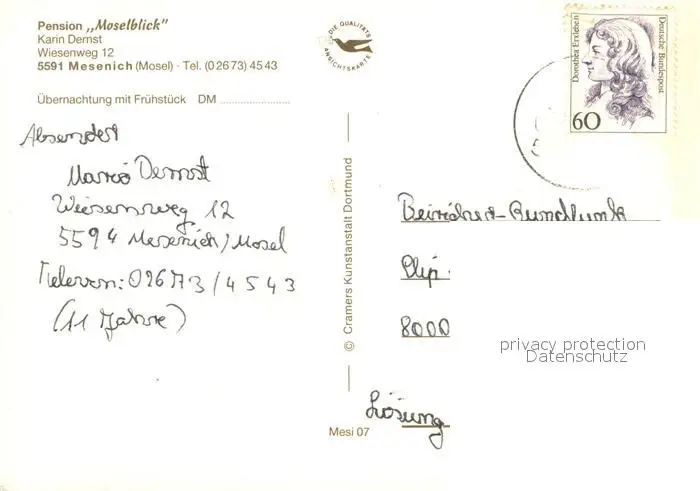 Pension „Moselblick"
Karin Dernst
Wiesenweg 12
5591 Mesenich (Mosel) · Tel. (0 26 73) 45 43
Übernachtung mit Frühstück DM ....................
Absender
Mario Dernst
Wiesenweg 12
5594 Mesenich/Mosel
Televon: 02673/4543
(11 Jahre)
DIE QUALITÄTS
ANSICHTSKARTE
© Cramers Kunstanstalt Dortmund
Mesi 07
Dorothea Erxleben
Deutsche Bundespost
60
8000
Lösung
privacy protection
Datenschutz